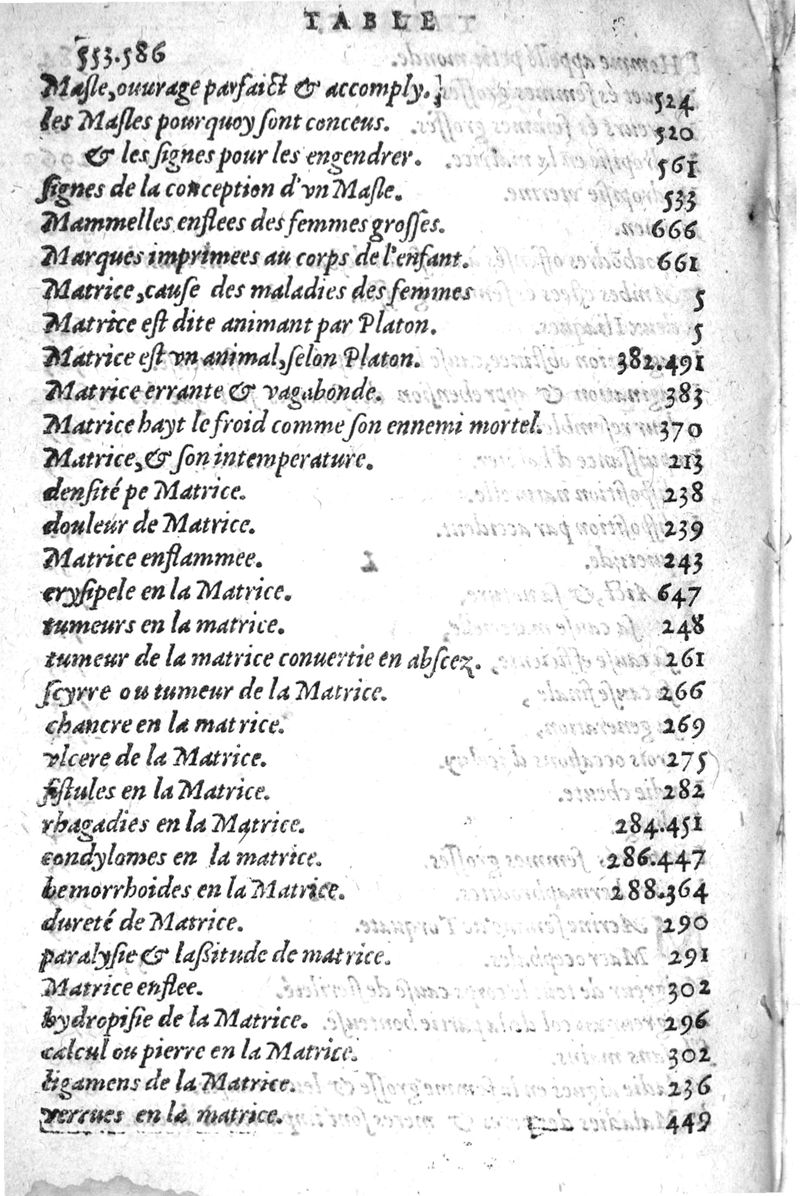 TABLE
553.586
Masle, ouurage parfaict & accomply. 524
les Masles pourquoy sont conceus. 520
& les signes pour les engendrer. 561
signes de la conception d'vn Masle. 533
Mammelles enflees des femmes grosses. 666
Marques imprimees au corps de l'enfant. 661
Matrice, cause des maladies des femmes 5
Matrice est dite animant par Platon. 5
Matrice est vn animal, selon Platon. 382.491
Matrice errante & vagabonde. 383
Matrice hayt le froid comme son ennemi mortel. 370
Matrice, & son intemperature. 213
densité pe Matrice. 238
douleur de Matrice. 239
Matrice enflammee. 243
erysipele en la Matrice. 647
tumeurs en la matrice. 248
tumeur de la matrice conuertie en abscez. 261
scyrre ou tumeur de la Matrice. 266
chancre en la matrice. 269
vlcere de la Matrice. 275
fistules en la Matrice. 282
rhagadies en la Matrice. 284.451
condylomes en la matrice. 286.447
hemorrhoides en la Matrice. 288.364
dureté de Matrice. 290
paralysie & lassitude de matrice. 291
Matrice enflee. 302
hydropisie de la Matrice. 296
calcul ou pierre en la Matrice. 302
ligamens de la Matrice. 236
verrues en la matrice. 449